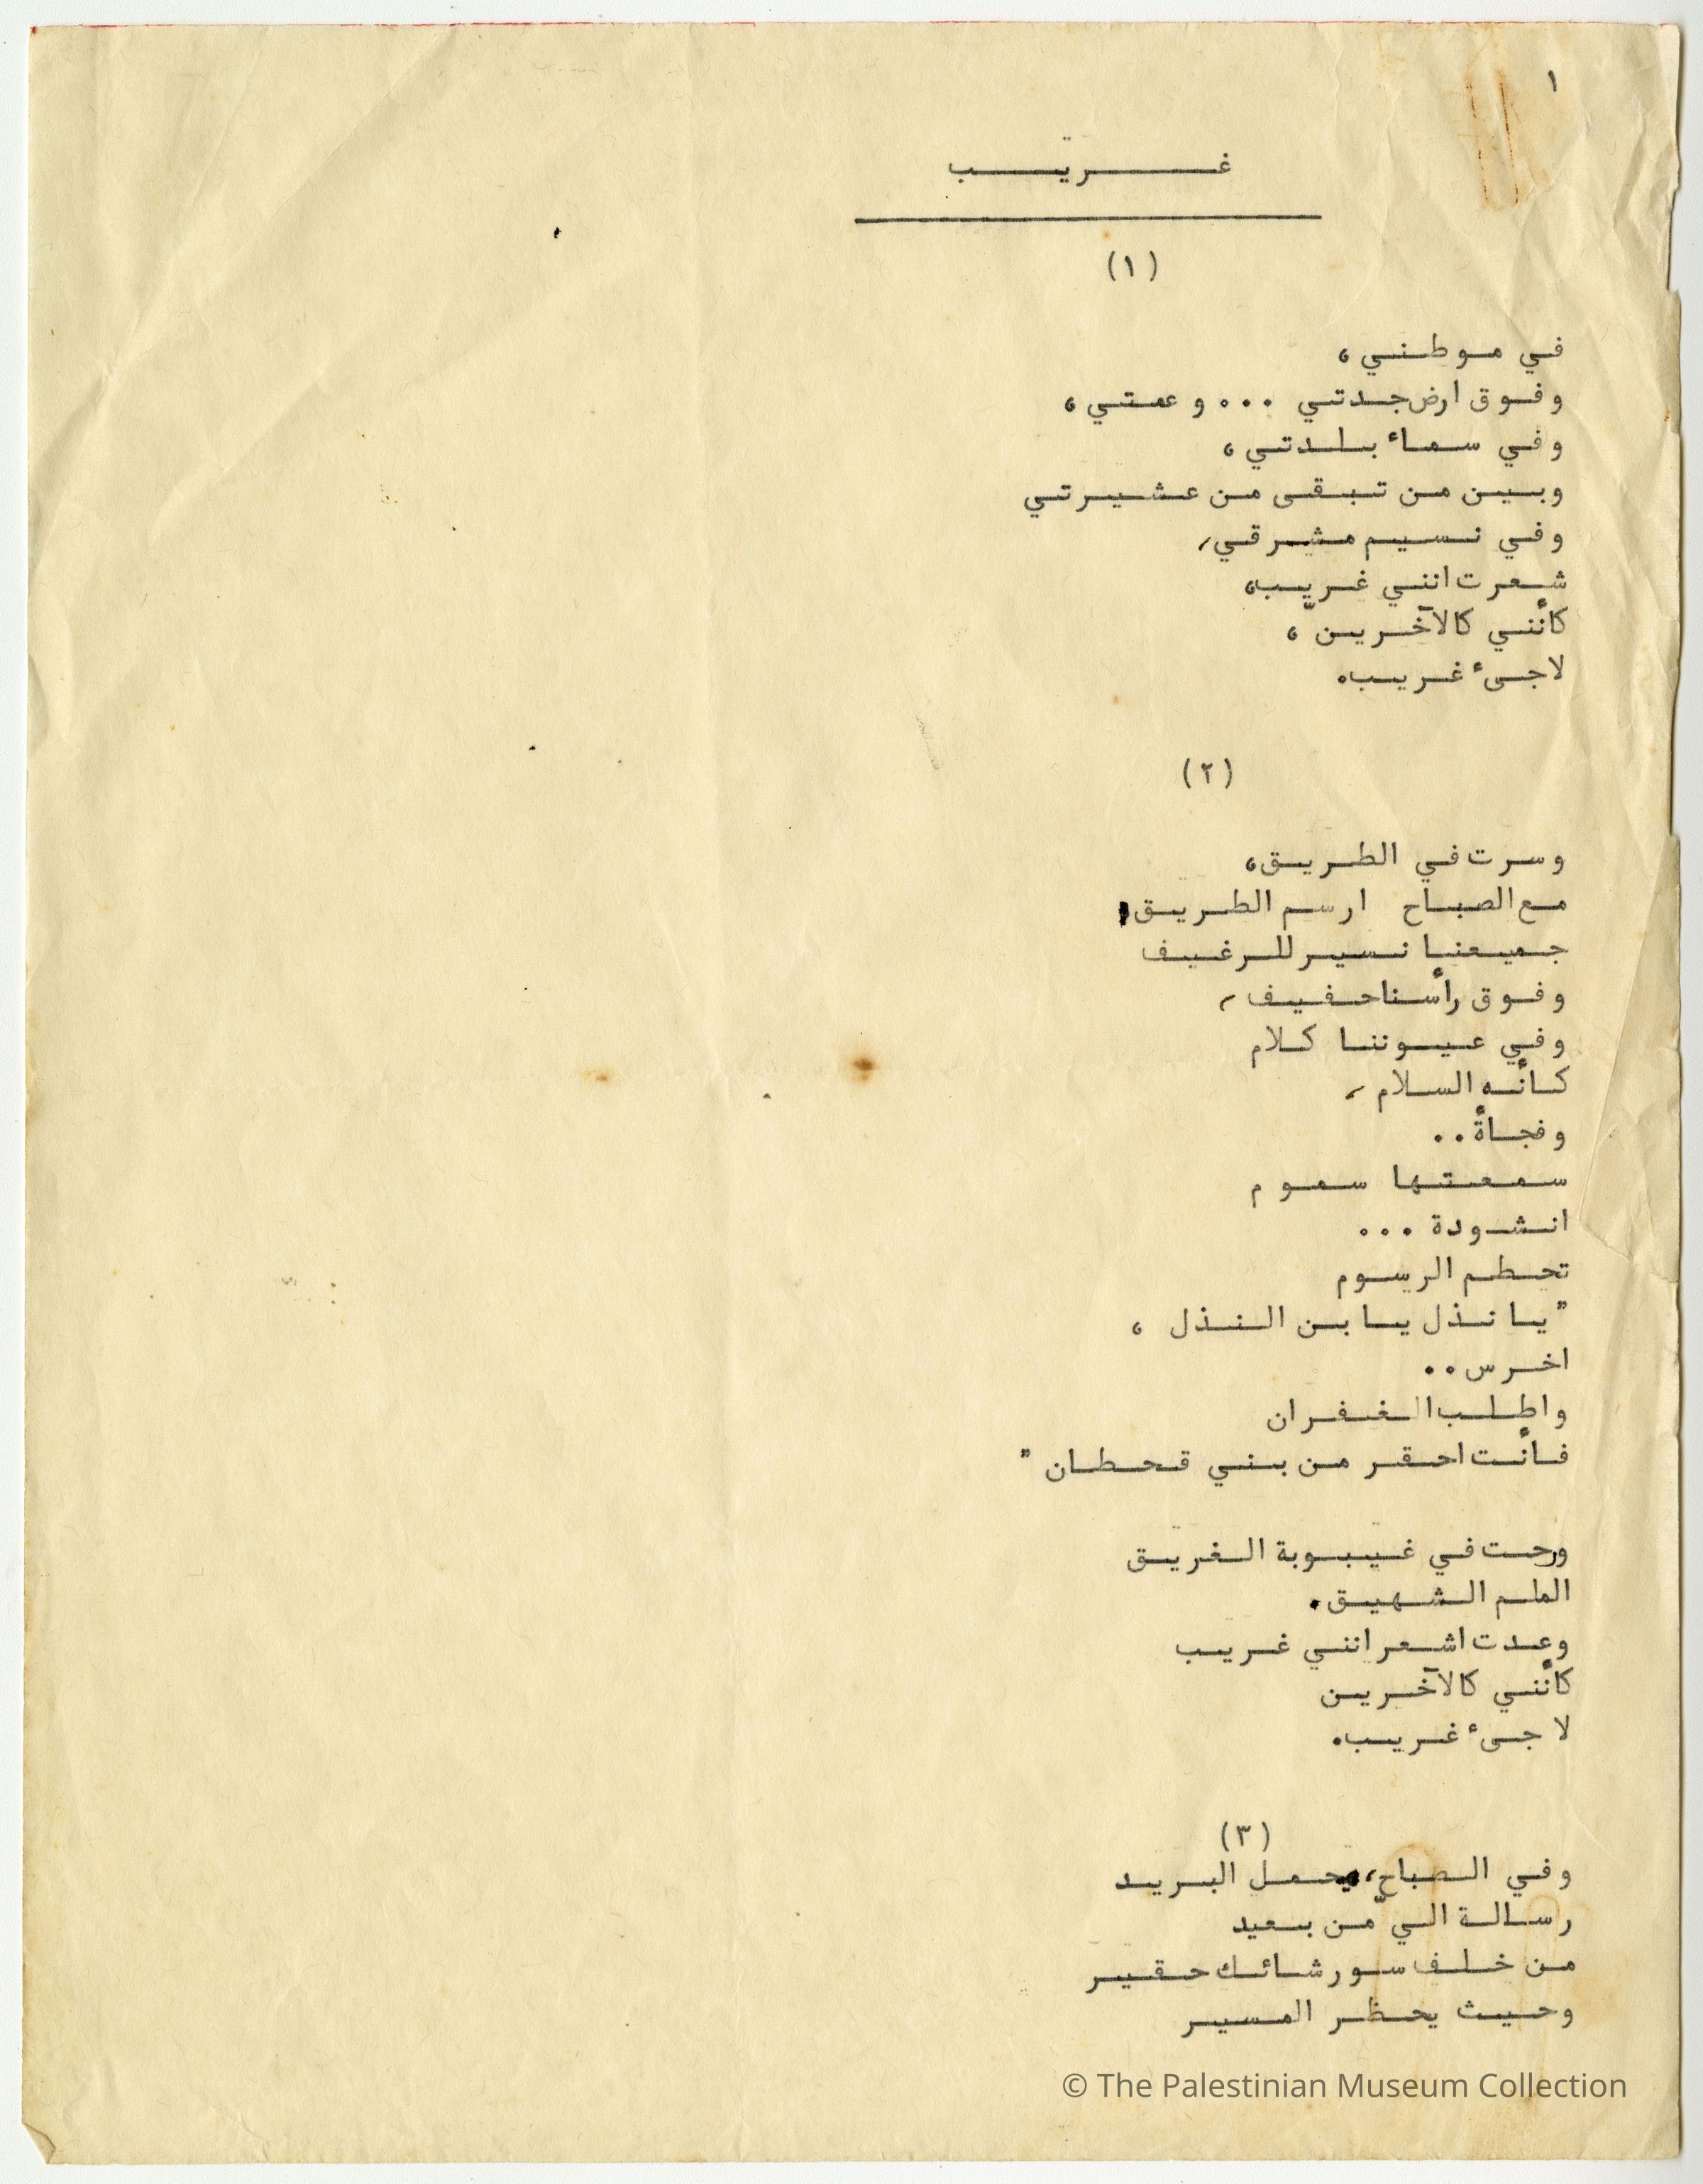 ١
غريب
(١)
في موطني،
وفوق ارض جدتي ... وعمتي،
وفي سماء بلدتي،
وبين من تبقى من عشيرتي
وفي نسيم مشرقي،
شعرت انني غريب،
كأنني كالآخرين،
لاجىء غريب.
(٢)
وسرت في الطريق،
مع الصباح ارسم الطريق
جميعنا نسير للرغيف
وفوق رأسنا حفيف،
وفي عيوننا كلام
كأنه السلام،
وفجأة..
سمعتها سموم
انشودة ...
تحطم الرسوم
"يا نذل يا بن النذل،
اخرس..
واطلب الغفران
فأنت احقر من بني قحطان"
ورحت في غيبوبة الغريق
الملم الشهيق.
وعدت اشعر انني غريب
كأنني كالآخرين
لاجىء غريب.
(٣)
وفي الصباح، يحمل البريد
رسالة اليّ من بعيد
من خلف سور شائك حقير
وحيث يحظر المسير
© The Palestinian Museum Collection